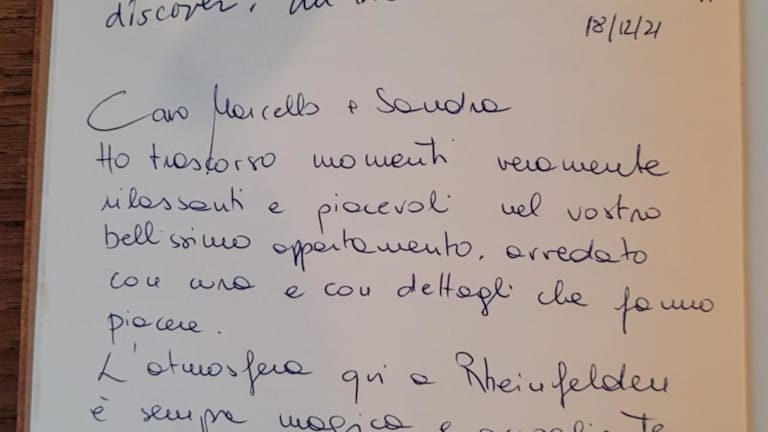 discover,
18/12/21
Caro Marcello e Sandra
Ho trascorso momenti veramente
rilassanti e piacevoli nel vostro
bellissimo appartamento, arredato
con cura e con dettagli che fanno
piacere.
L'atmosfera qui a Rheinfelden
è sempre magica e